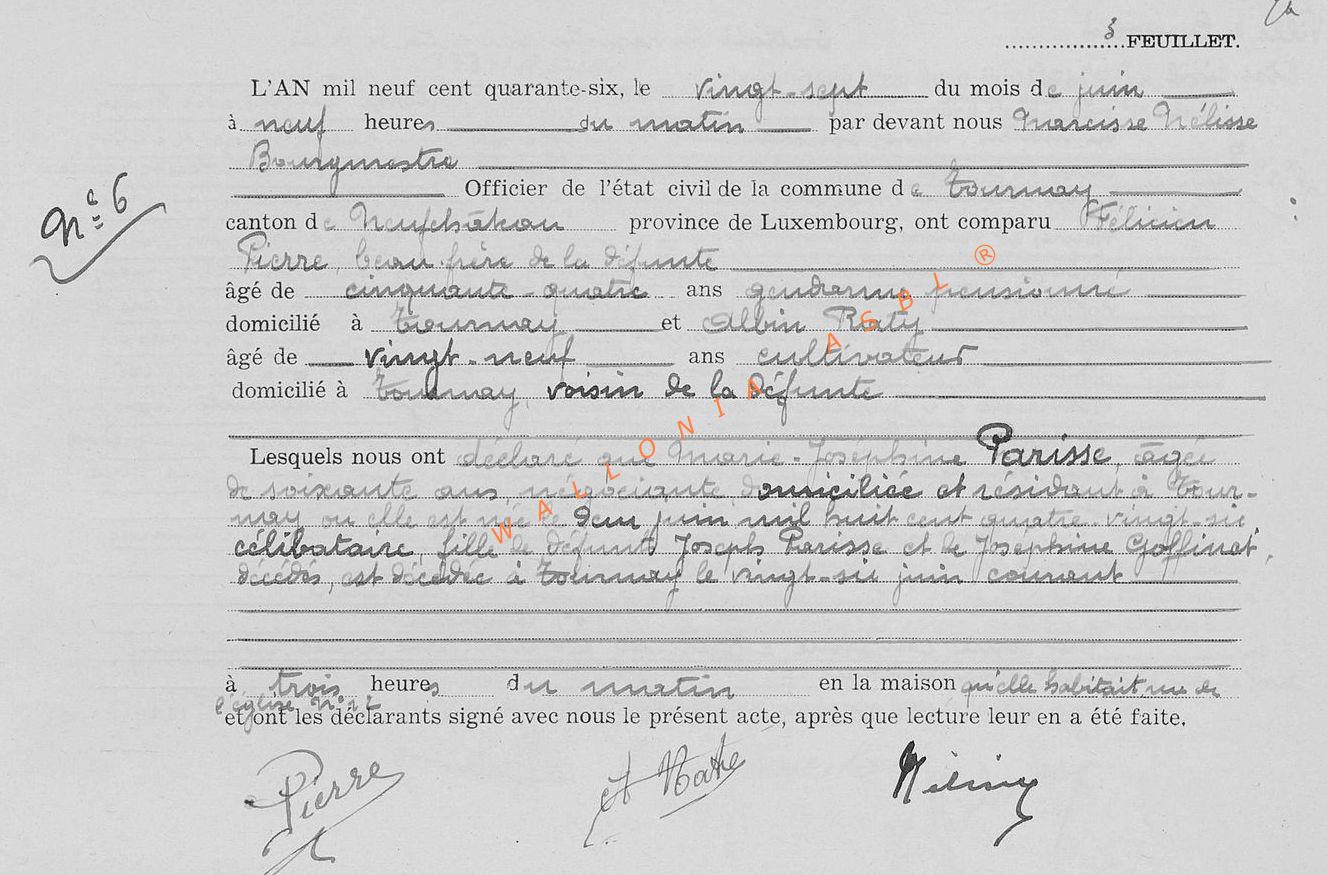 3 FEUILLET.
L'AN mil neuf cent quarante-six, le vingt-sept du mois de juin
à neuf heures du matin par devant nous Narcisse Nélisse
Bourgmestre
Officier de l'état civil de la commune de Tournay
Nº 6
canton de Neufchâteau province de Luxembourg, ont comparu Félicien
Pierre, beau-frère de la défunte
âgé de cinquante-quatre ans gendarme pensionné
domicilié à Tournay et Albin Raty
âgé de vingt-neuf ans cultivateur
domicilié à Tournay, voisin de la défunte
Lesquels nous ont déclaré que Marie-Joséphine Parisse, âgée
de soixante ans, négociante domiciliée et résidant à Tour-
nay ou elle est née le deux juin mil huit cent quatre-vingt-six
célibataire, fille de défunts Joseph Parisse et de Joséphine Goffinet,
décédés, est décédée à Tournay le vingt-six juin courant
à trois heures du matin en la maison qu'elle habitait rue de
l'église Nº 12
et ont les déclarants signé avec nous le présent acte, après que lecture leur en a été faite.
Pierre
WALLONIA ASBL ®